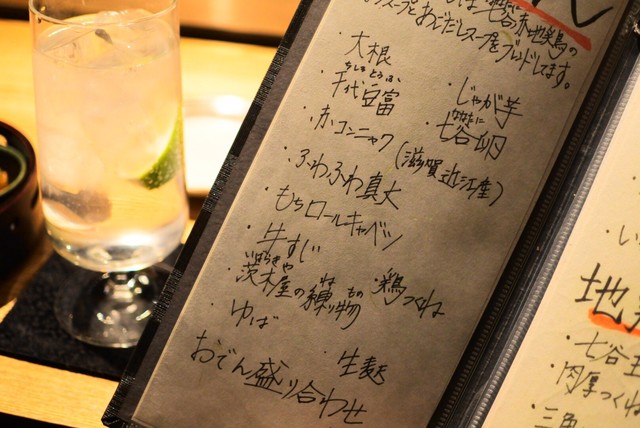 七谷赤地鶏の
スープとあごだしスープをブレンドしてます。
・大根
・千代豆富
・じゃが芋
・七谷卵
・赤コンニャク(滋賀近江産)
・ふわふわ真丈
・もちロールキャベツ
・牛すじ
いばらきや
・茨木屋の練り物
・鶏つくね
・ゆば
・生麩
おでん盛り合わせ
・い
地
・七谷
・肉厚つくね
・三角